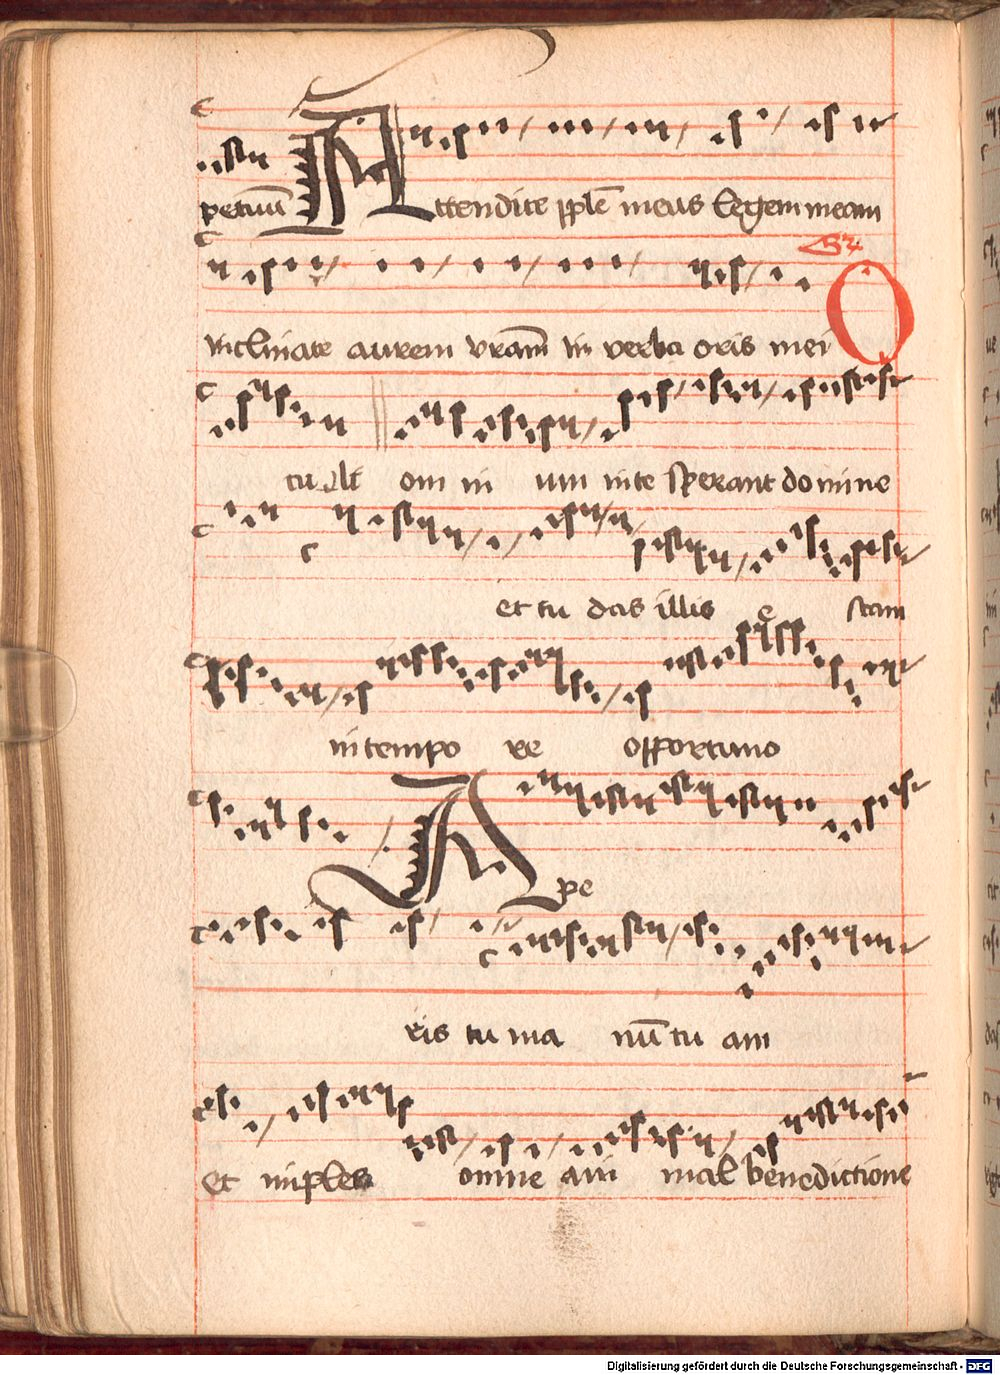 petuū Attendite pple meus legem meam
Inclinate aurem vram̄ in verba oris mei O
culi om ni um in te sperant domine
et tu das illis e scam
in tempo re opportuno
Ape
ris tu ma nū tu am
et imples omne ani mal benedictione
Digitalisierung gefördert durch die Deutsche Forschungsgemeinschaft - DFG